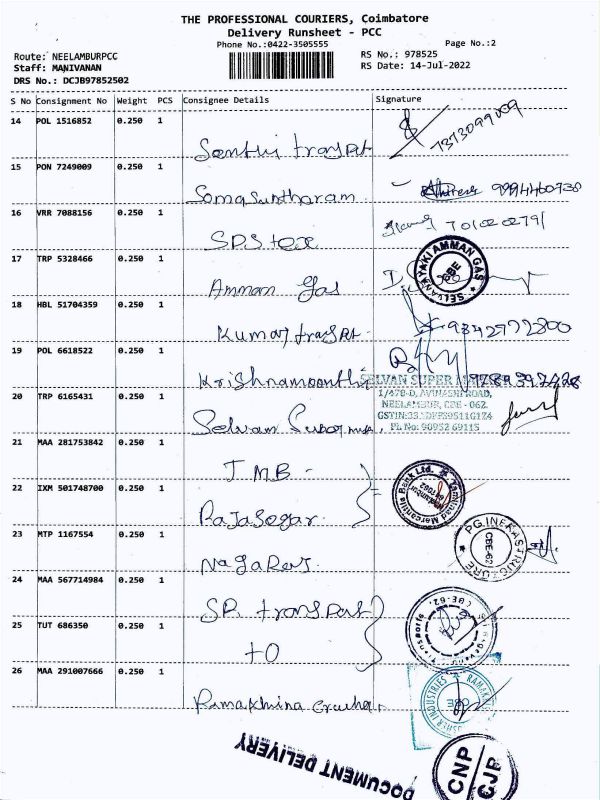 THE PROFESSIONAL COURIERS, Coimbatore
Delivery Runsheet - PCC
Phone No.:0422-3505555
Page No.:2
Route: NEELAMBURPCC
Staff: MANIVANAN
DRS No.: DCJB97852502
RS No.: 978525
RS Date: 14-Jul-2022
S No Consignment No Weight PCS Consignee Details Signature
14 POL 1516852 0.250 1
7373099009
Santhi
15 PON 7249009 0.250 1
Somasuntharam 9994460938
16 VRR 7088156 0.250 1
SPS tex
17 TRP 5328466 0.250 1
SELVANAYAKI AMMAN GAS
CBE
Amman Gas
18 HBL 51704359 0.250 1
Kumar 9842972800
19 POL 6618522 0.250 1
Krishnamoorthi
SELVAN SUPER
20 TRP 6165431 0.250 1
1/478-D, AVINASHI ROAD,
NEELAMBUR, CBE - 062.
Ph No: 90952 69115
Selvam
21 MAA 281753842 0.250 1
TMB
22 IXM 501748700 0.250 1
Tamilnad Mercantile Bank Ltd.
Neelambur
641062
Rajasegar
23 MTP 1167554 0.250 1
PG.INFRASTRUCTURE
CBE-62
Nagaraj
24 MAA 567714984 0.250 1
SR transport
25 TUT 686350 0.250 1
CBE-62.
Transports
TO
26 MAA 291007666 0.250 1
INDUSTRIES
CBE
DOCUMENT DELIVERY
CNP
CJP